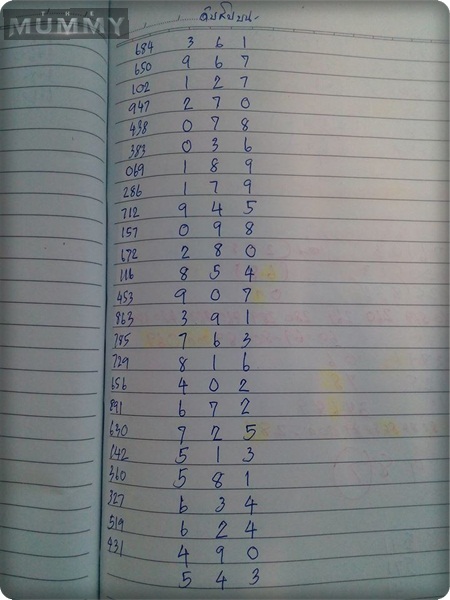 THAI
MUMMY
ดับสิบบน
684 3 6 1
650 9 6 7
102 1 2 7
947 2 7 0
438 0 7 8
383 0 3 6
069 1 8 9
286 1 7 9
712 9 4 5
157 0 9 8
672 2 8 0
116 8 5 4
453 9 0 7
863 3 9 1
785 7 6 3
729 8 1 6
656 4 0 2
891 6 7 2
630 7 2 5
142 5 1 3
360 5 8 1
327 6 3 4
519 6 2 4
431 4 9 0
5 4 3